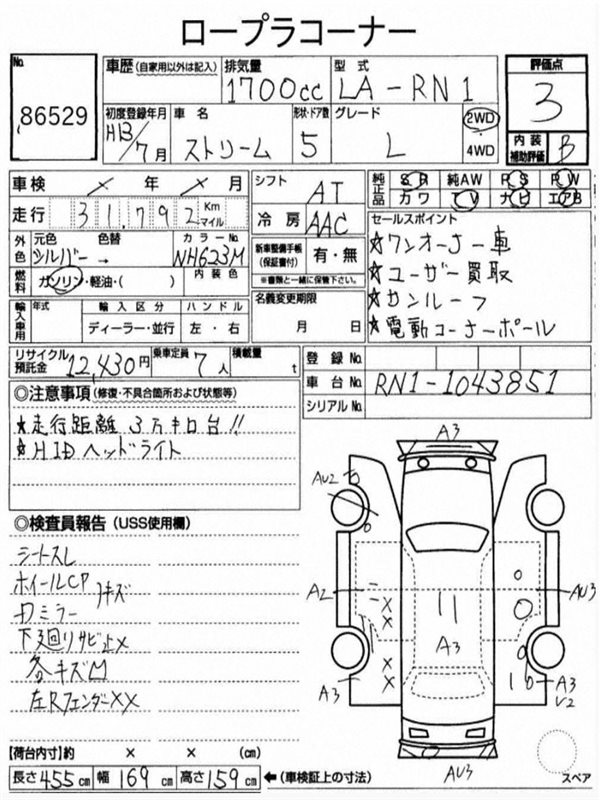 ロープラコーナー
No. 86529
車歴 (自家用以外は記入) 排気量 1700cc 型式 LA-RN1
評価点 3
初度登録年月 H13/7月 車名 ストリーム 形状・ドア数 5 グレード L 2WD 4WD
内装補助評価 B
車検 × 年 × 月
シフト AT
純正品 SR 純AW PS PW
カワ TV ナビ エアB
走行 31,792 Km マイル
冷房 AAC
セールスポイント
外色 元色 シルバー 色替 → カラーNo. NH623M
新車整備手帳(保証書付) 有・無
※書類と一緒に保管下さい。
★ワンオーナー車
燃料 ガソリン・軽油・( ) 内装色
★ユーザー買取
名義変更期限 月 日
★サンルーフ
輸入車用 年式 輸入区分 ハンドル
ディーラー・並行 左・右
★電動コーナーポール
リサイクル預託金 12,430円 乗車定員 7人 積載量 t
登録No.
車台No. RN1-1043851
シリアルNo.
◎注意事項(修復・不具合箇所および状態等)
★走行距離 3万キロ台!!
★HIDヘッドライト
◎検査員報告(USS使用欄)
シートスレ
ホイールCP キズ
ミラー
下廻りサビ止×
各キズ凹
左RフェンダーXX
A3
AU2
A2
AU3
A3
A3
A3
V2
AU3
スペア
【荷台内寸】約 × × (cm)
長さ 455cm 幅 169cm 高さ 159cm ←(車検証上の寸法)